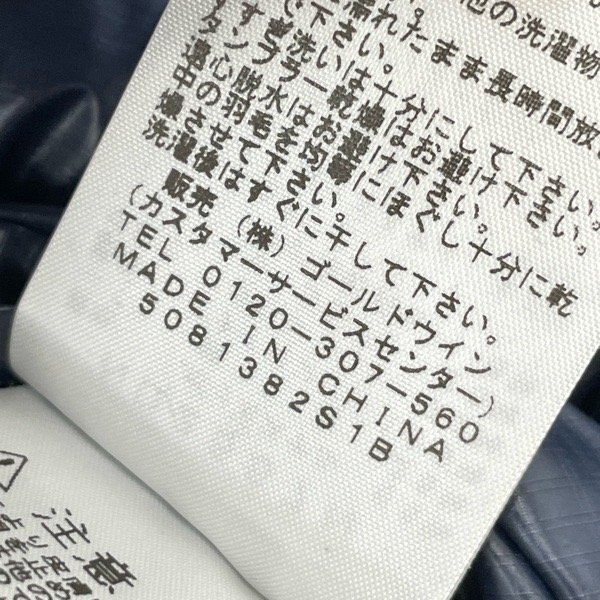 他の洗濯物
濡れたまま長時間放
下さい。
すすぎ洗いは十分にして下さい。
タンブラー乾燥はお避け下さい。
遠心脱水はお避け下さい。
中の羽毛を均等にほぐし十分に乾
燥させて下さい。
洗濯後はすぐに干して下さい。
販売 (株)ゴールドウイン
(カスタマーサービスセンター)
TEL 0120-307-560
MADE IN CHINA
5081382S1B
注意